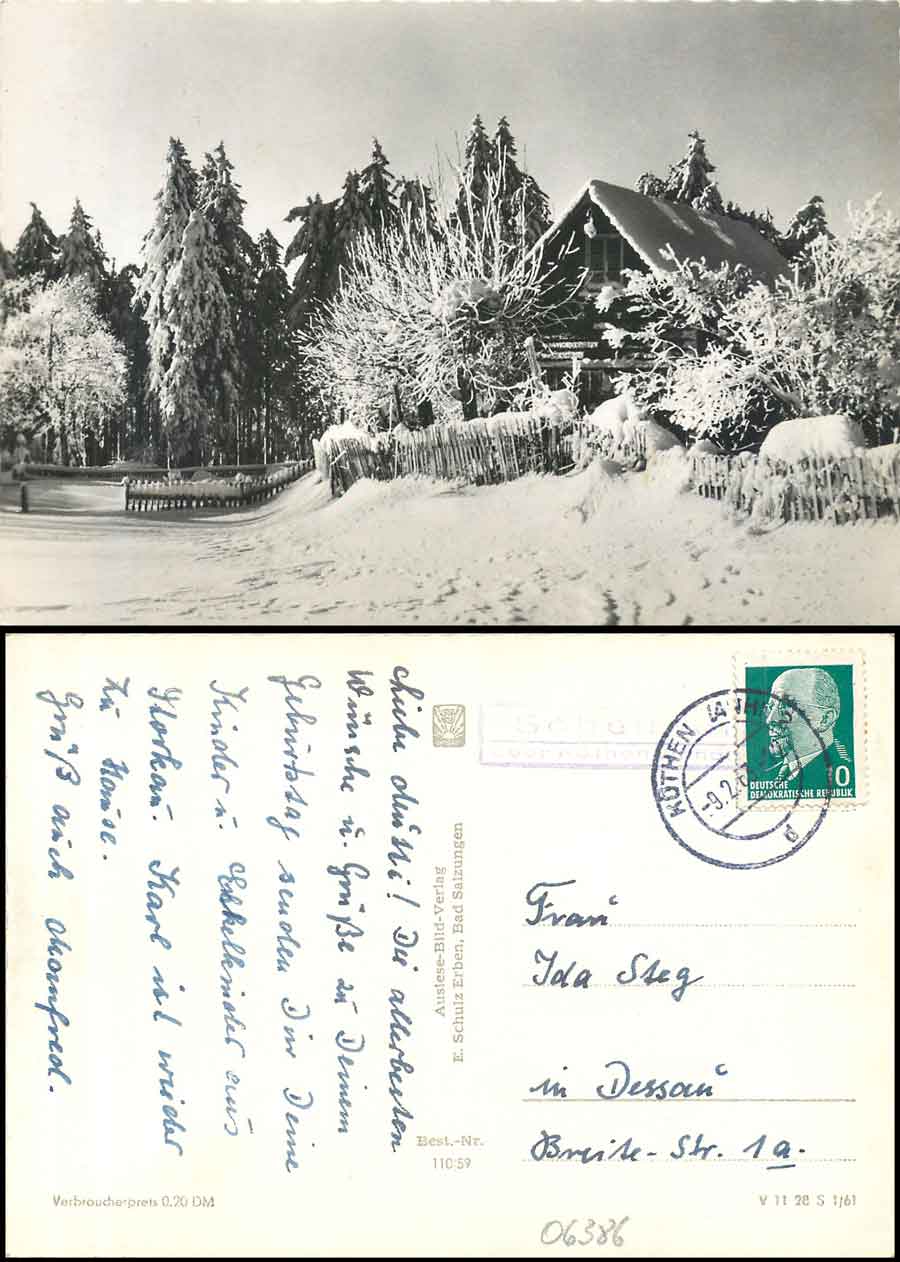 Liebe Mutti! Die allerbesten
Wünsche u. Grüße zu Deinem
Geburtstag senden Dir Deine
Kinder u. Enkelkinder aus
Storkau. Karl ist wieder
zu Hause.
Gruß auch Manfred.
Auslese-Bild-Verlag
E. Schulz Erben, Bad Salzungen
Best.-Nr.
110/59
Verbraucherpreis 0,20 DM
über Köthen
KÖTHEN (ANHALT)
-9.2.
d
10
DEUTSCHE
DEMOKRATISCHE REPUBLIK
Frau
Ida Steg
in Dessau
Breite-Str. 1a.
V 11 28 S 1/61
06386